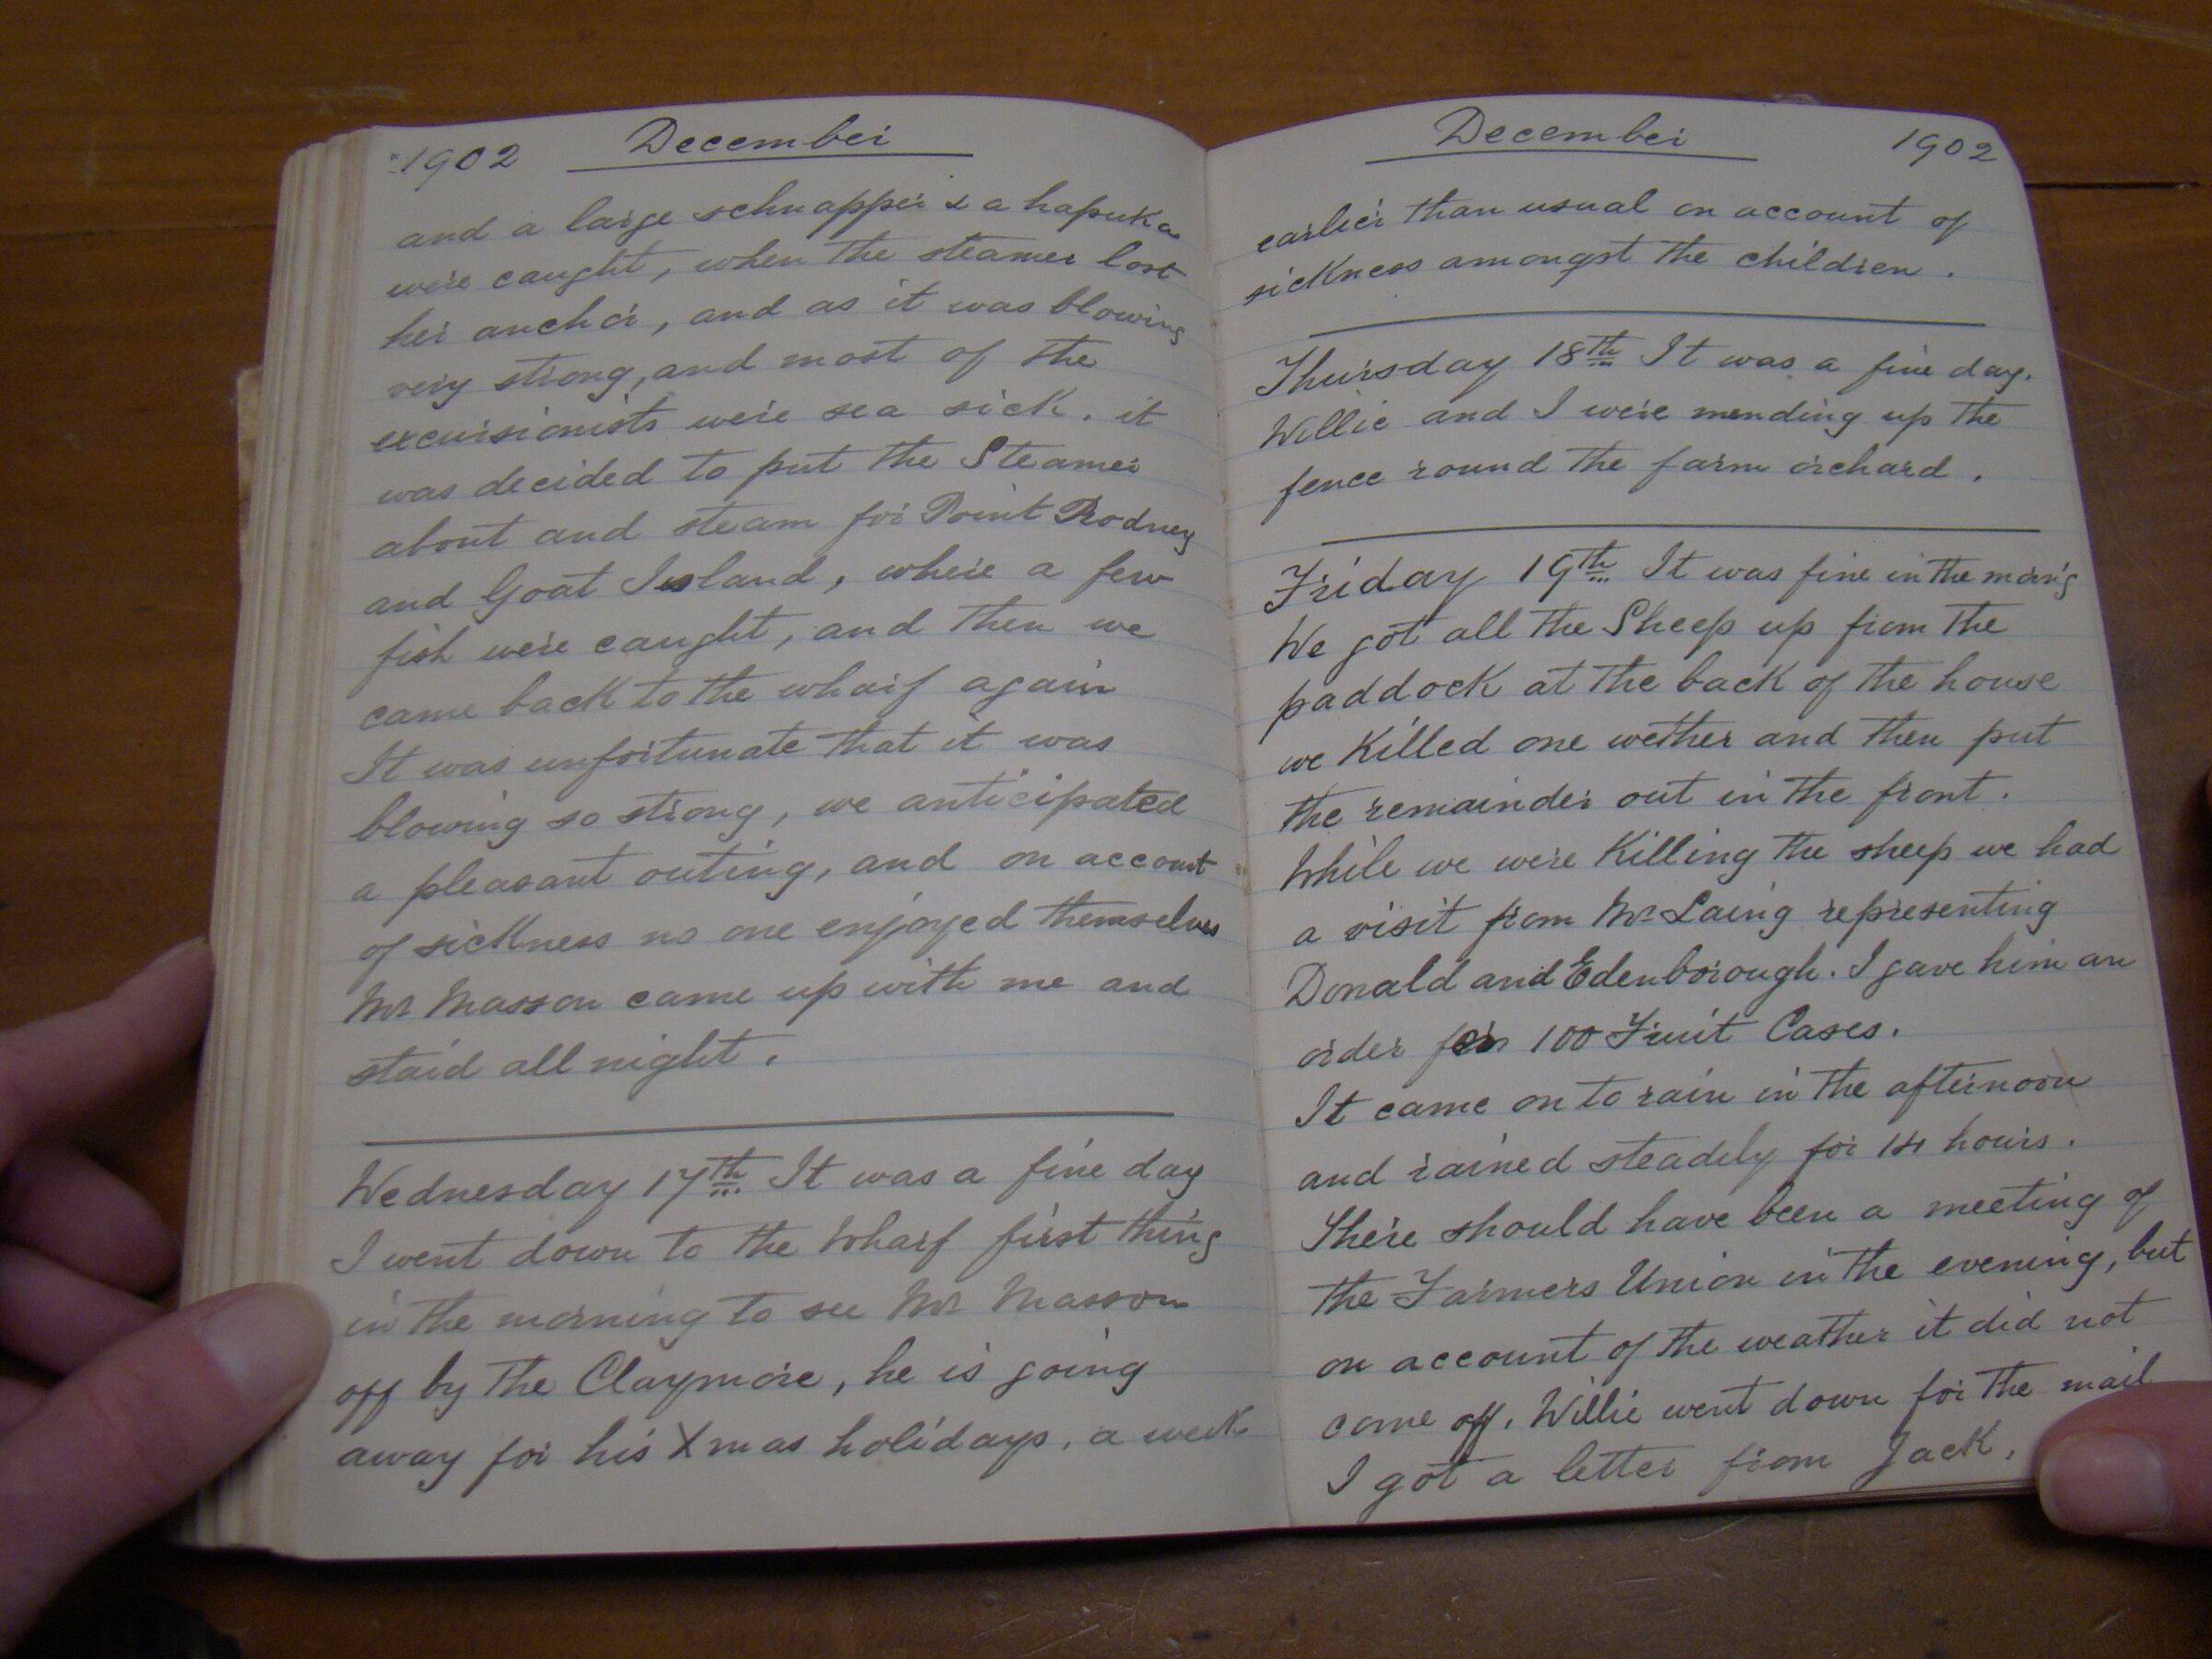 1902 December
and a large schnapper & a hapuka
were caught, when the steamer lost
her anchor, and as it was blowing
very strong, and most of the
excursionists were sea sick. it
was decided to put the Steamer
about and steam for Point Rodney
and Goat Island, where a few
fish were caught, and then we
came back to the wharf again
It was unfortunate that it was
blowing so strong, we anticipated
a pleasant outing, and on account
of sickness no one enjoyed themselves
Mr Masson came up with me and
staid all night.
Wednesday 17th It was a fine day
I went down to the Wharf first thing
in the morning to see Mr Masson
off by the Claymore, he is going
away for his Xmas holidays, a week
December 1902
earlier than usual on account of
sickness amongst the children.
Thursday 18th It was a fine day.
Willie and I were mending up the
fence round the farm orchard.
Friday 19th It was fine in the morn'g
We got all the Sheep up from the
paddock at the back of the house
we Killed one wether and then put
the remainder out in the front.
While we were Killing the sheep we had
a visit from Mr Laing representing
Donald and Edenborough. I gave him an
order for 100 Fruit Cases.
It came on to rain in the afternoon
and rained steadily for 14 hours.
There should have been a meeting of
the Farmers Union in the evening, but
on account of the weather it did not
come off. Willie went down for the mail
I got a letter from Jack.